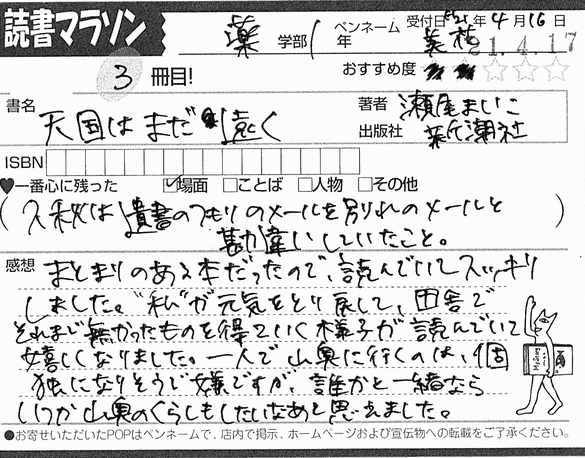 読書マラソン
薬 学部 1 年
ペンネーム 美枝
受付日 '21年 4月 16日
21.4.17
3 冊目!
おすすめ度 ★★☆☆☆
書名 天国はまだ遠く
著者 瀬尾まいこ
出版社 新潮社
ISBN
♥一番心に残った ☑場面 □ことば □人物 □その他
(久秋は遺書のつもりのメールを別れのメールと
勘違いしていたこと。)
感想 まとまりのある本だったので、読んでいてスッキリ
しました。"私"が元気をとり戻して、田舎で
それまで無かったものを得ていく様子が読んでいて
嬉しくなりました。一人で山奥に行くのは、孤
独になりそうで嫌ですが、誰かと一緒なら
いつか山奥のくらしもしたいなあと思えました。
●お寄せいただいたPOPはペンネームで、店内で掲示、ホームページおよび宣伝物への転載をご了承ください。